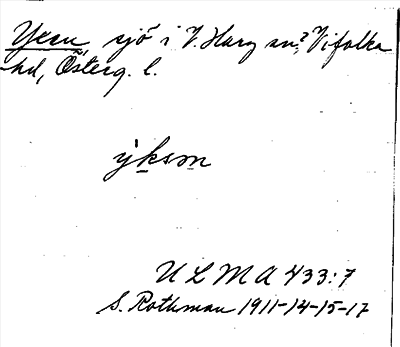 Yxen sjö i V. Harg sn? Vifolka
hd, Österg. l.
ýksm
ULMA 433:7
S. Rothman 1911-14-15-17